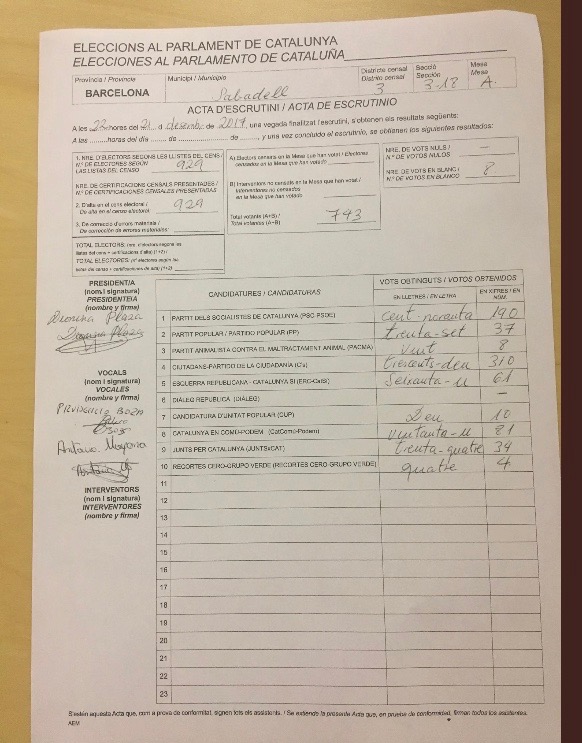 ELECCIONS AL PARLAMENT DE CATALUNYA
ELECCIONES AL PARLAMENTO DE CATALUÑA
Provincia / Provincia
BARCELONA
Municipi / Municipio
Sabadell
Districte censal
Distrito censal
3
Secció
Sección
3-18
Mesa
Mesa
A.
ACTA D'ESCRUTINI / ACTA DE ESCRUTINIO
A les 22 hores del 21 d desembre de 2017, una vegada finalitzat l'escrutini, s'obtenen els resultats següents:
A las ..........horas del día ..... de ..................... de ........, y una vez concluido el escrutinio, se obtienen los siguientes resultados:
1. NRE. D'ELECTORS SEGONS LES LLISTES DEL CENS /
N.º DE ELECTORES SEGÚN
LAS LISTAS DEL CENSO
929
NRE. DE CERTIFICACIONS CENSALS PRESENTADES /
N.º DE CERTIFICACIONES CENSALES PRESENTADAS
2. D'alta en el cens electoral /
De alta en el censo electoral
929
3. De correcció d'errors materials /
De corrección de errores materiales
TOTAL ELECTORS: (nre. d'electors segons les
llistes del cens + certificacions d'alta) (1+2) /
TOTAL ELECTORES: (n.º electores según las
listas del censo + certificaciones de alta) (1+2)
A) Electors censats en la Mesa que han votat / Electores
censados en la mesa que han votado
B) Interventors no censats en la Mesa que han votat /
Interventores no censados
en la Mesa que han votado
Total votants (A+B) /
Total votantes (A+B)
743
NRE. DE VOTS NULS /
N.º DE VOTOS NULOS
—
NRE. DE VOTS EN BLANC /
N.º DE VOTOS EN BLANCO
8
PRESIDENT/A
(nom i signatura)
PRESIDENTE/A
(nombre y firma)
Plaza
VOCALS
(nom i signatura)
VOCALES
(nombre y firma)
INTERVENTORS
(nom i signatura)
INTERVENTORES
(nombre y firma)
CANDIDATURES / CANDIDATURAS
VOTS OBTINGUTS / VOTOS OBTENIDOS
EN LLETRES / EN LETRA
EN XIFRES / EN NÚM.
1 PARTIT DELS SOCIALISTES DE CATALUNYA (PSC-PSOE) cent noranta 190
2 PARTIT POPULAR / PARTIDO POPULAR (PP) trenta-set 37
3 PARTIT ANIMALISTA CONTRA EL MALTRACTAMENT ANIMAL (PACMA) vuit 8
4 CIUTADANS-PARTIDO DE LA CIUDADANÍA (C's) trescents-deu 310
5 ESQUERRA REPUBLICANA - CATALUNYA SÍ (ERC-CatSí) Seixanta-u 61
6 DIÀLEG REPUBLICÀ (DIÀLEG) —
7 CANDIDATURA D'UNITAT POPULAR (CUP) Deu 10
8 CATALUNYA EN COMÚ-PODEM (CatComú-Podem) vuitanta-u 81
9 JUNTS PER CATALUNYA (JUNTSxCAT) trenta-quatre 34
10 RECORTES CERO-GRUPO VERDE (RECORTES CERO-GRUPO VERDE) quatre 4
11
12
13
14
15
16
17
18
19
20
21
22
23
S'estén aquesta Acta que, com a prova de conformitat, signen tots els assistents. / Se extiende la presente Acta que, en prueba de conformidad, firman todos los asistentes.
AEM